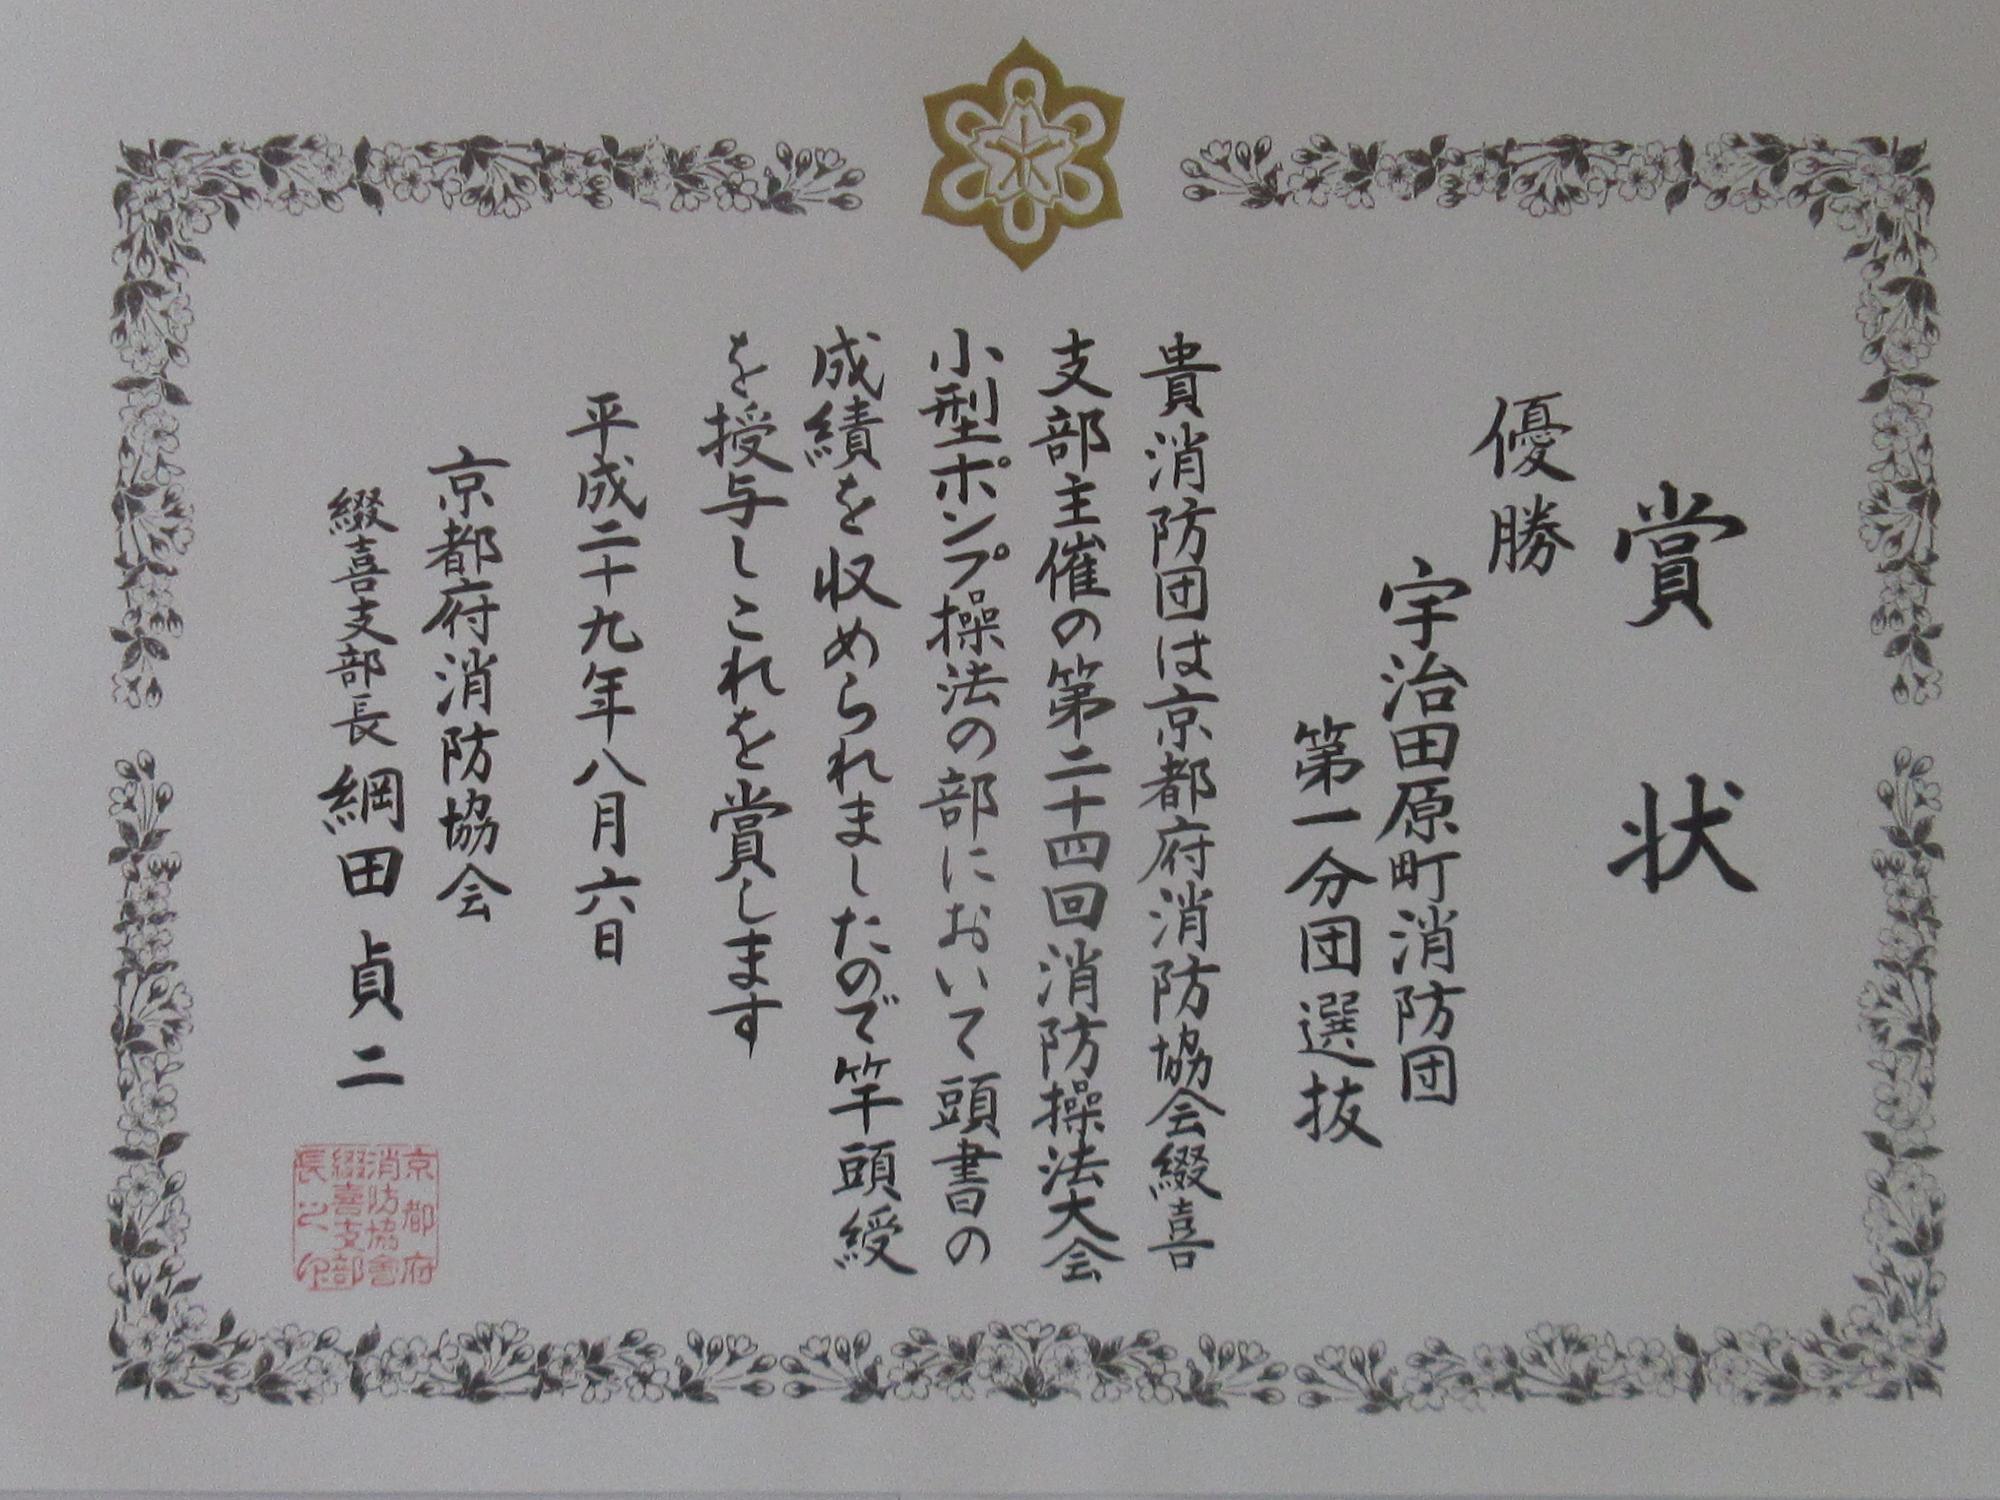 賞状
優勝
宇治田原町消防団
第一分団選抜
貴消防団は京都府消防協会綴喜
支部主催の第二十四回消防操法大会
小型ポンプ操法の部において頭書の
成績を収められましたので竿頭綬
を授与しこれを賞します
平成二十九年八月六日
京都府消防協会
綴喜支部長 綱田貞二
京都府
消防協會
綴喜支部
長之印